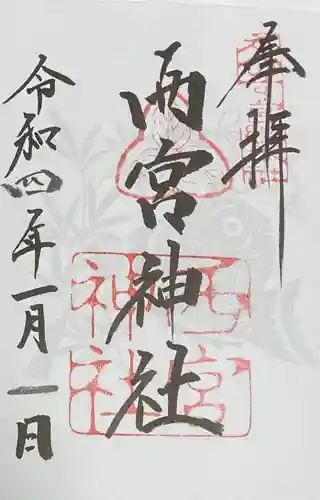 奉拝
西宮神社
令和四年一月一日
西宮
神社